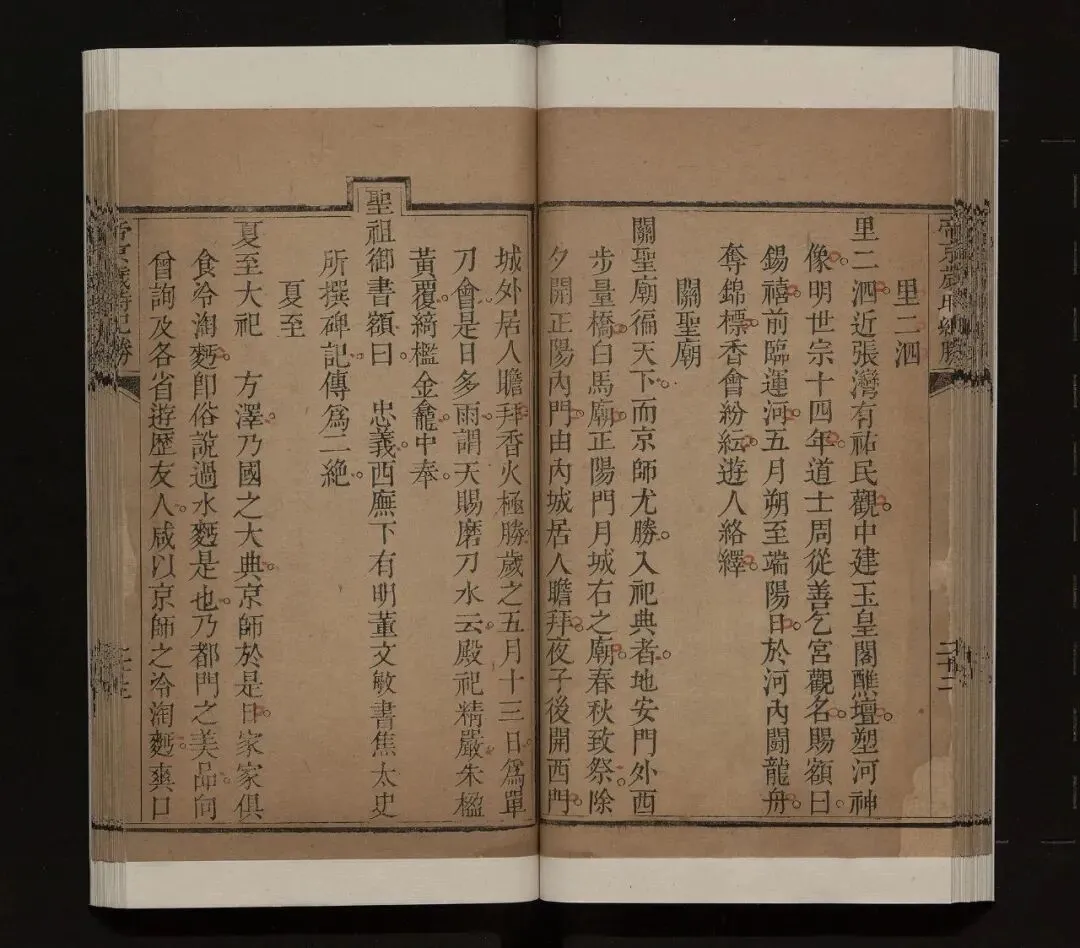 帝京歲時紀勝
里二泗
里二泗近張灣有祐民觀中建玉皇閣醮壇塑河神
像明世宗十四年道士周從善乞宮觀名賜額曰
錫禧前臨運河五月朔至端陽日於河內鬪龍舟
奪錦標香會紛紜遊人絡繹
關聖廟
關聖廟徧天下而京師尤勝入祀典者地安門外西
步量橋白馬廟正陽門月城右之廟春秋致祭除
夕開正陽內門由內城居人瞻拜夜子後開西門
城外居人瞻拜香火極勝歲之五月十三日爲單
刀會是日多雨謂天賜磨刀水云殿祀精嚴朱楹
黃覆綺檻金龕中奉
聖祖御書額曰 忠義西廡下有明董文敏書焦太史
所撰碑記傳爲二絕
夏至
夏至大祀 方澤乃國之大典京師於是日家家俱
食冷淘麪卽俗說過水麪是也乃都門之美品向
曾詢及各省遊歷友人咸以京師之冷淘麪爽口
帝京歲時紀勝